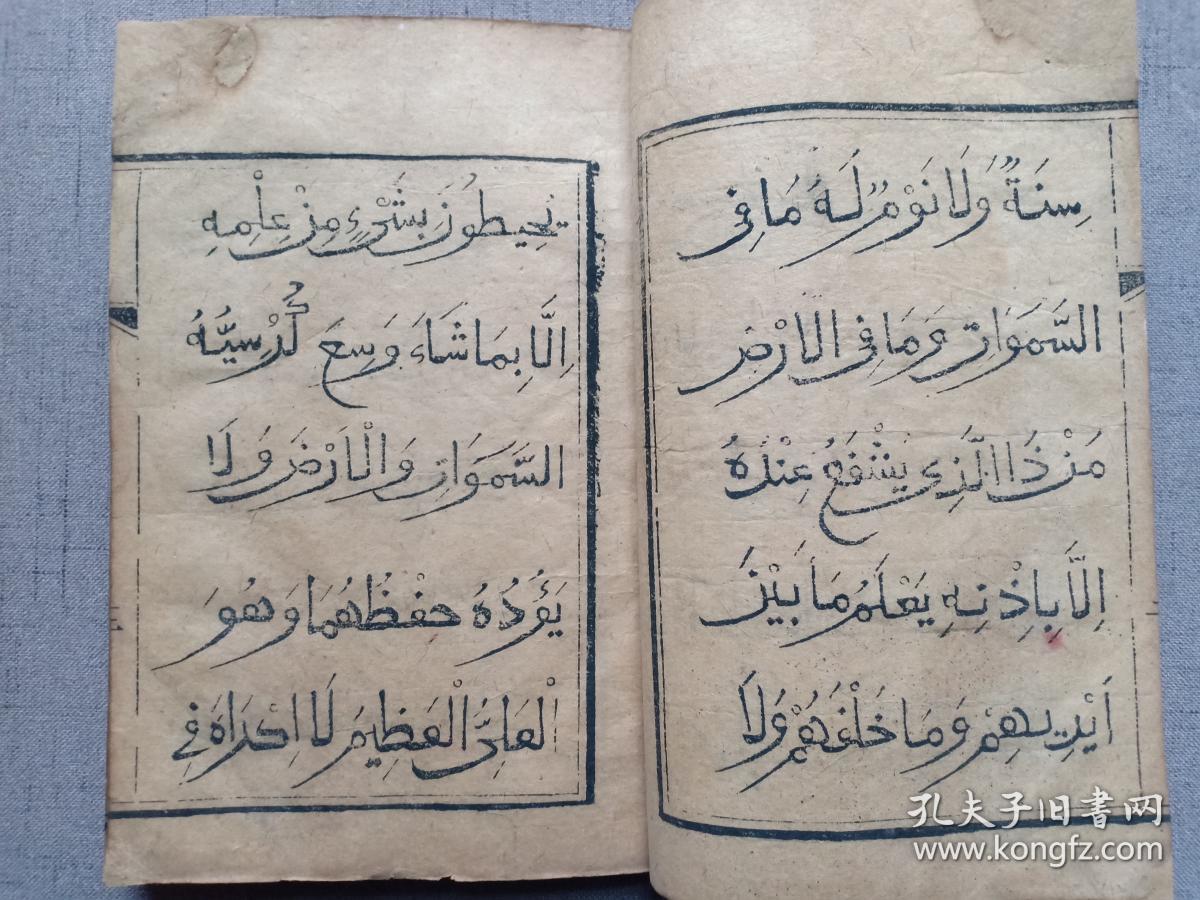 سِنَةٌ وَلَا نَوْمٌ لَهُ مَا فِى
السَّمَوَاتِ وَمَا فِى الْاَرْضِ
مَنْ ذَا الَّذِى يَشْفَعُ عِنْدَهُ
اِلَّا بِاِذْنِهِ يَعْلَمُ مَا بَيْنَ
اَيْدِيهِمْ وَمَا خَلْفَهُمْ وَلَا
يُحِيطُونَ بِشَىْءٍ مِنْ عِلْمِهِ
اِلَّا بِمَا شَاءَ وَسِعَ كُرْسِيُّهُ
السَّمَوَاتِ وَالْاَرْضَ وَلَا
يَؤُدُهُ حِفْظُهُمَا وَهُوَ
الْعَلِىُّ الْعَظِيمُ لَا اِكْرَاهَ فِى
孔夫子旧書网
www.kongfz.com